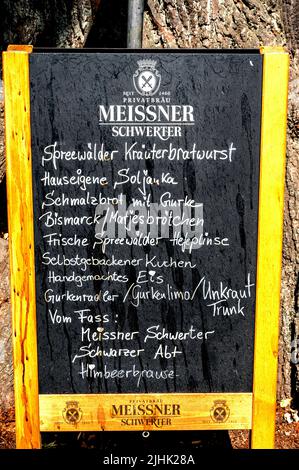 SEIT 1460
PRIVATBRÄU
MEISSNER
SCHWERTER
Spreewälder Kräuterbratwurst
Hauseigene Soljanka
Schmalzbrot mit Gurke
Bismarck/Matjesbrötchen
Frische Spreewälder Hefplinse
Selbstgebackener Kuchen
Handgemachtes Eis
Gurkenradler/Gurkenlimo/Unkraut
Trunk
Vom Fass:
Meissner Schwerter
Schwarzer Abt
Himbeerbrause
PRIVATBRÄU
MEISSNER
SCHWERTER
alamy
Image ID: 2JHK28A
www.alamy.com